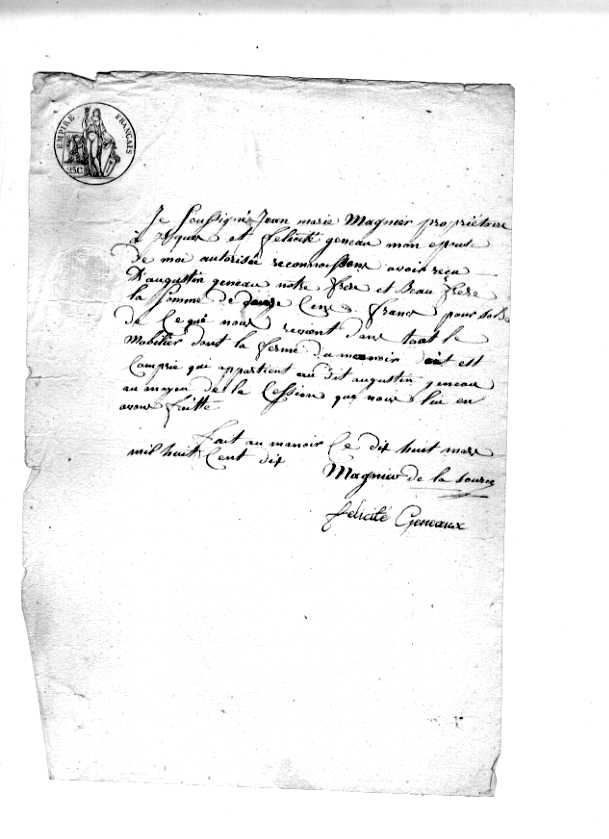 EMPIRE FRANÇAIS
25C
Je Soussigné Jean marie Magnier propriétaire
à et félicité geneau mon epouse
de moi autorisée reconnoissons avoir reçu
D'augustin geneau notre frere et Beau frere
la Somme de Cens francs pour solde
de Ce qui nous revient dans tout le
Mobilier dont la ferme du manoir est
Comprise qui appartient au dit augustin geneau
au moyen de la Cession que nous lui en
avons faitte
fait au manoir Ce dix huit mars
mil huit Cent dix
Magnier de la source
felicité Geneaux